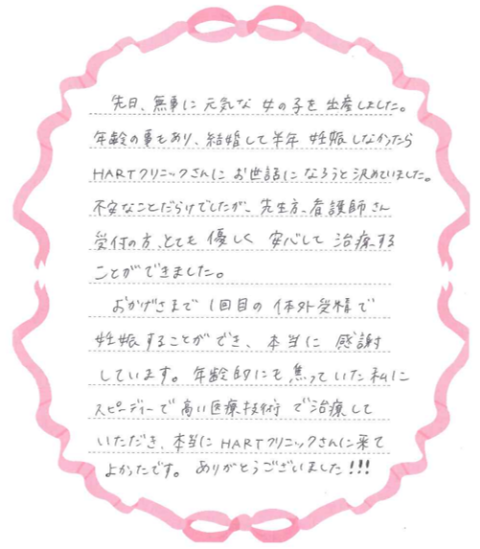 先日、無事に元気な女の子を出産しました。
年齢の事もあり、結婚して半年妊娠しなかったら
HARTクリニックさんにお世話になろうと決めていました。
不安なことだらけでしたが、先生方、看護師さん
受付の方、とても優しく安心して治療する
ことができました。
おかげさまで1回目の体外受精で
妊娠することができ、本当に感謝
しています。年齢的にも焦っていた私に
スピーディーで高い医療技術で治療して
いただき、本当にHARTクリニックさんに来て
よかったです。ありがとうございました!!!